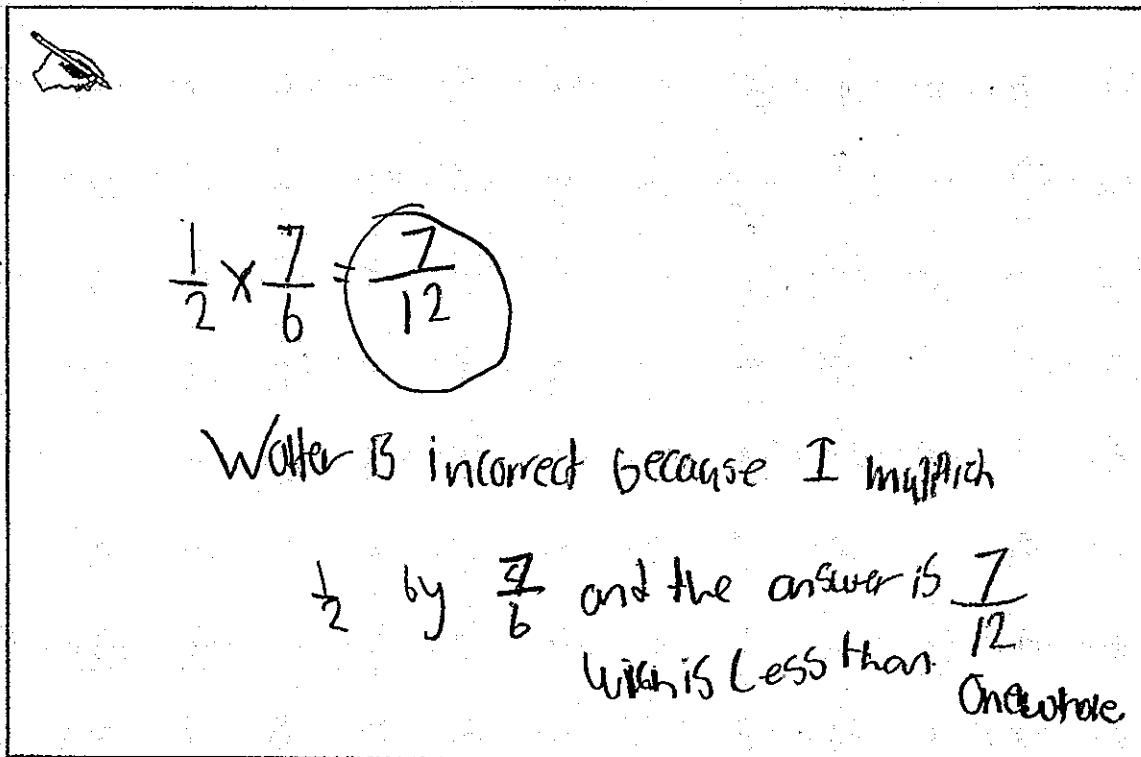 1/2 × 7/6 = 7/12
Walter is incorrect because I
1/2 by 7/6 and the answer is 7/12
is Less than One whole